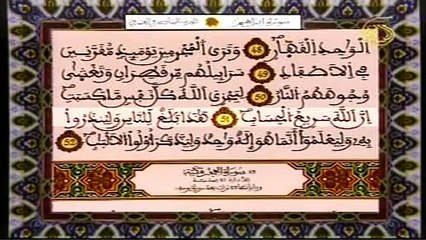 سورة ابراهيم
الوحد القهار 48 وترى المجرمين يومئذ مقرنين
في الاصفاد 49 سرابيلهم من قطران وتغشى
وجوههم النار 50 ليجزي الله كل نفس ما كسبت
إن الله سريع الحساب 51 هذا بلغ للناس ولينذروا
به وليعلموا أنما هو إله وحد وليذكر أولوا الالبب 52
سورة الحجر مكية